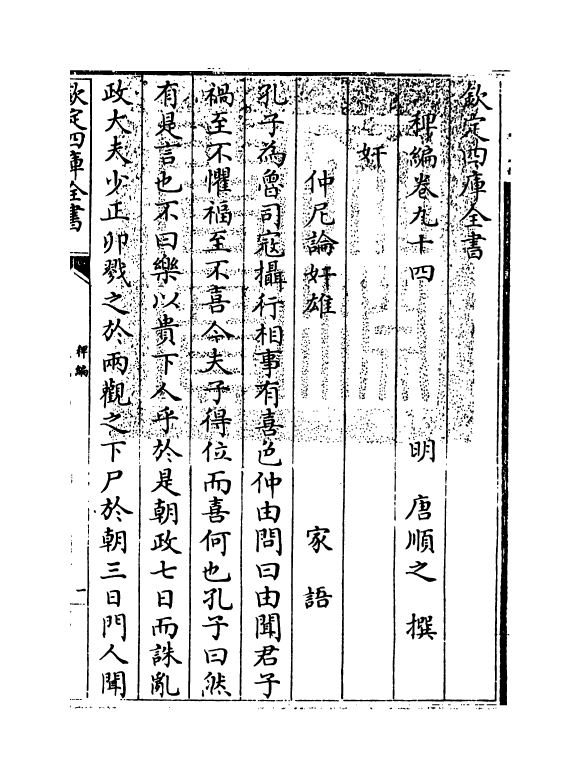 欽定四庫全書
稗編卷九十四　明　唐順之　撰
奸
仲尼論奸雄　家語
孔子為魯司寇攝行相事有喜色仲由問曰由聞君子
禍至不懼福至不喜今夫子得位而喜何也孔子曰然
有是言也不曰樂以貴下人乎於是朝政七日而誅亂
政大夫少正卯戮之於兩觀之下尸於朝三日門人聞
欽定四庫全書
稗編